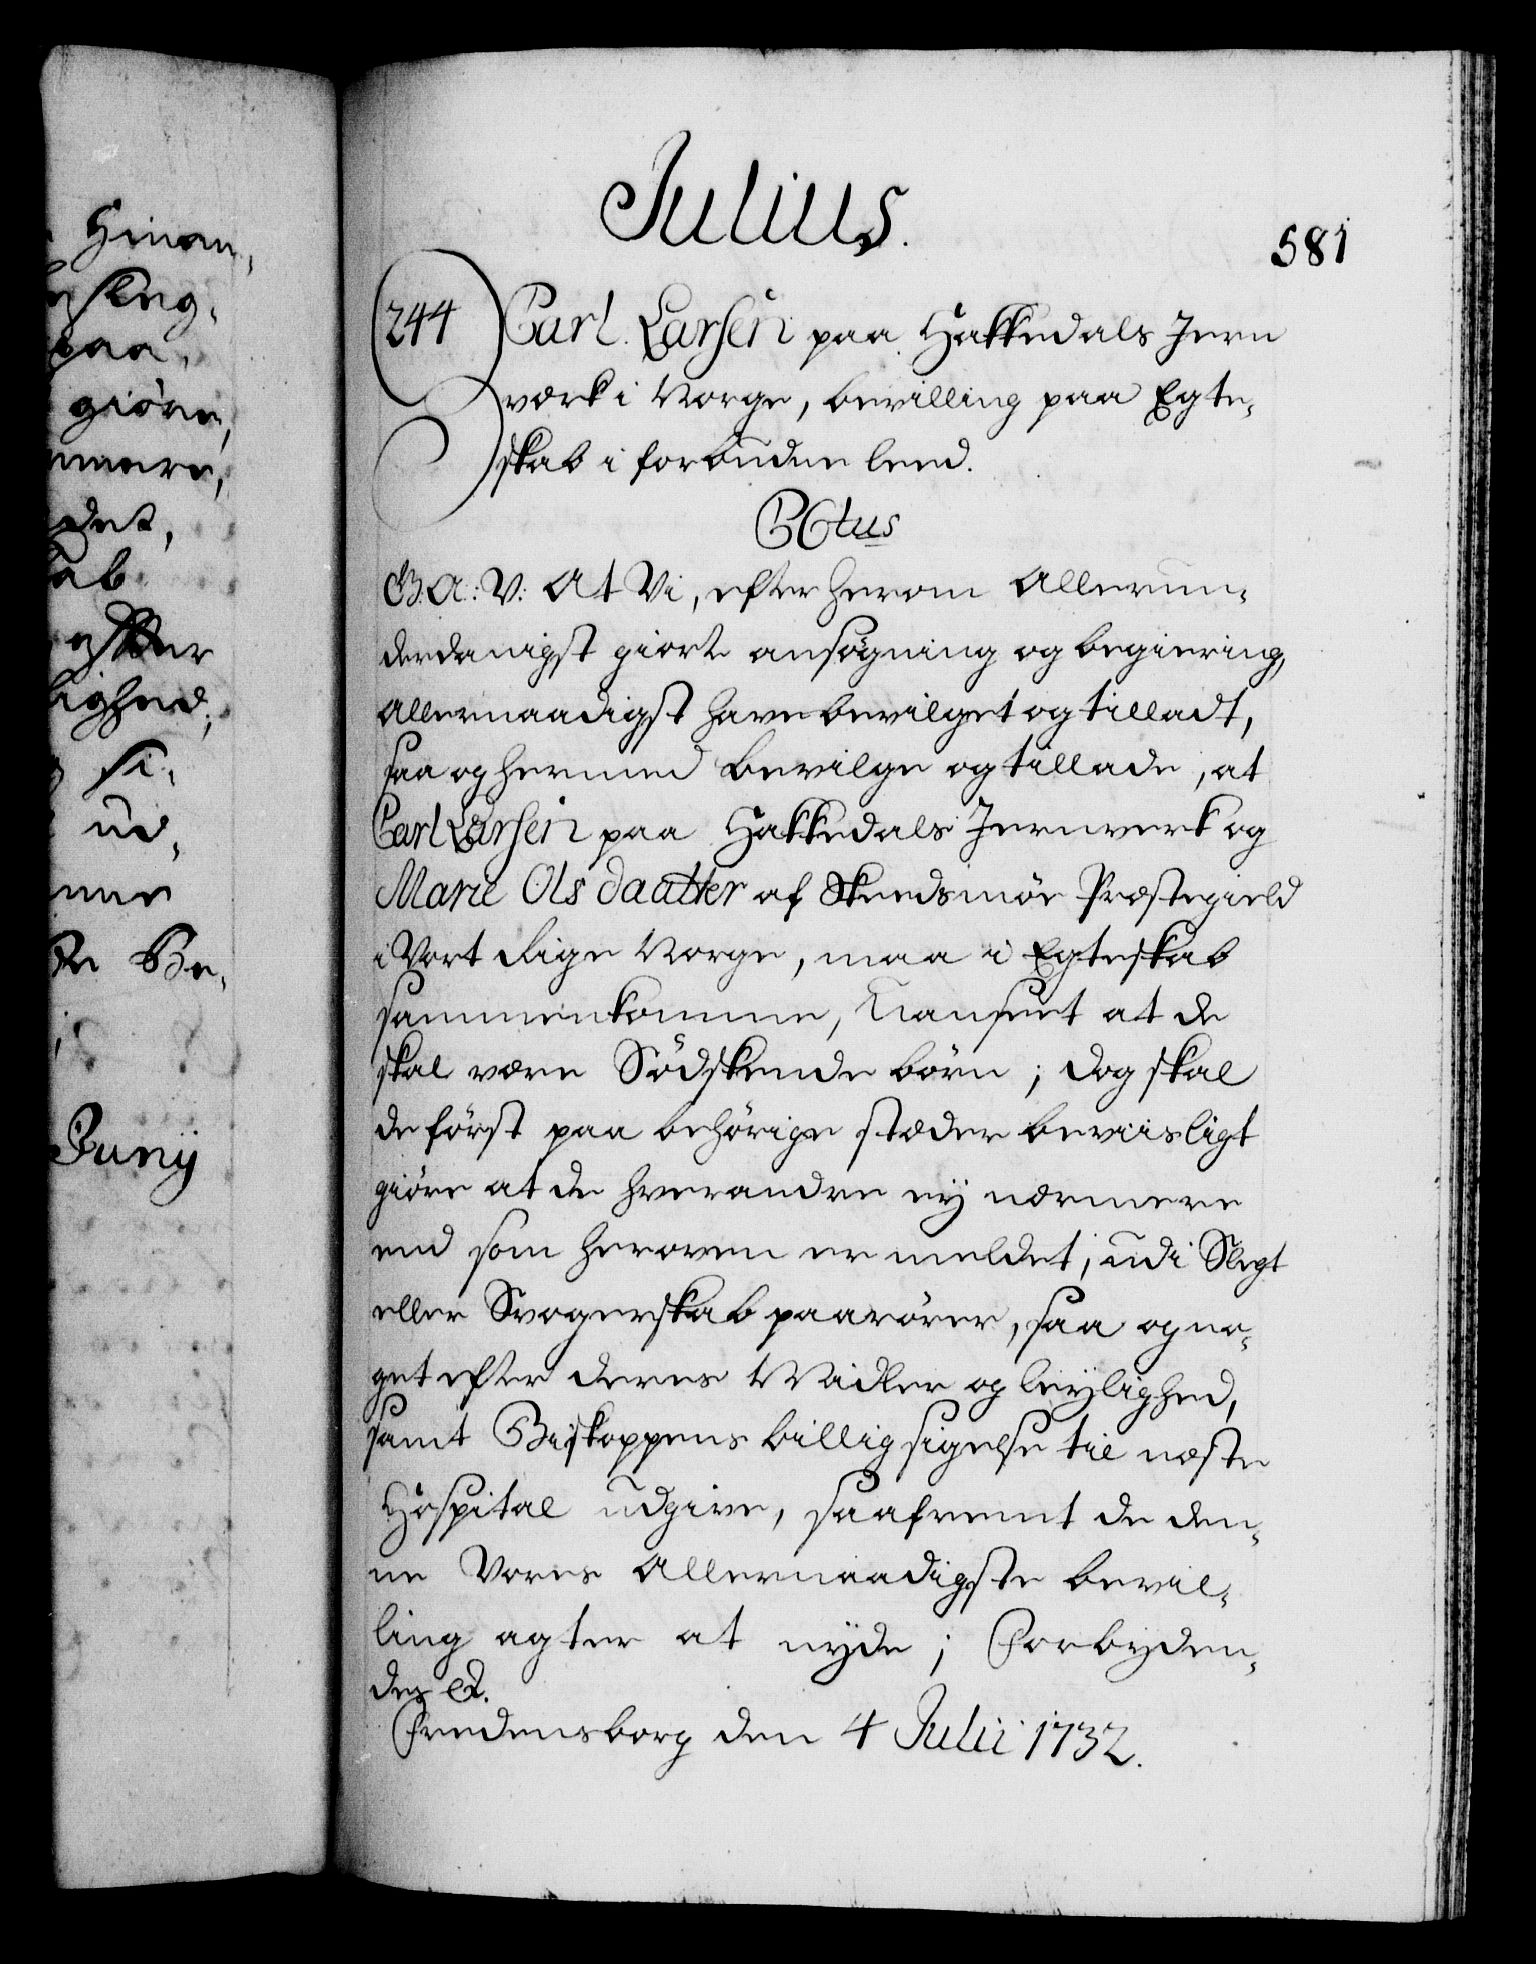 Julius.
581
244 Carl Larsen paa Hakkedals Jern
værk i Norge, bevilling paa Egte,
skab i forbuden leed.
C6tus
G. A: V: At Vi, efter herom allerun,
derdanigst giort ansøgning og begiering,
allernaadigst have bevilget og tilladt,
saa og hermed bevilge og tillade, at
Carl Larsen paa Hakkedals Jernverk og
Marie Ols daatter af Skeedsmöe Præstegield
i Vort Rige Norge, maa i Egteskab
sammenkomme, Uanseet at de
skal være Södskende börn; dog skal
de först paa behörige stæder beviisligt
giöre at de hverandre ey nærmere
end som heroven er meldet, udi Slegt
eller Svogerskab paarörer, saa og no,
get efter deres Midler og leylighed,
samt Biskoppens billigsigelse til næste
Hospital udgive, saafremt de den,
ne Vores allernaadigste bevil,
ling agter at nyde; Forbyden,
des &.
Fredensborg den 4 Julii 1732.
Hinan,
paa,
giöre,
det,
efter
lighed,
ud,
Be,
Junij